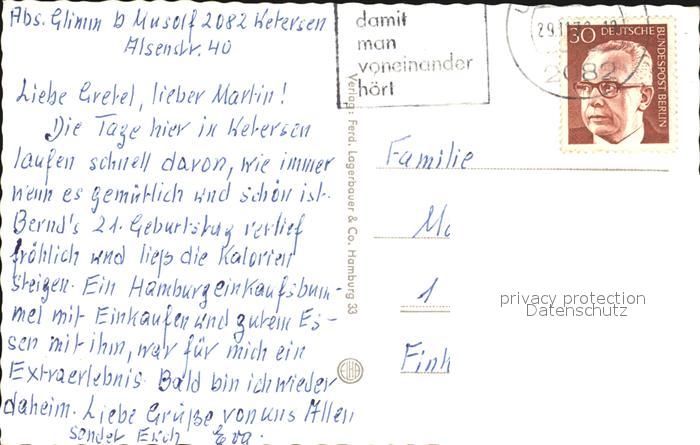 Abs. Glimm b Musolf 2082 Uetersen
Alsenstr. 40
damit
man
voneinander
hört
29.11.
2082
30 DEUTSCHE
BUNDESPOST BERLIN
Liebe Gretel, lieber Martin!
Die Tage hier in Uetersen
laufen schnell davon, wie immer
wenn es gemütlich und schön ist.
Bernd's 21. Geburtstag verlief
fröhlich und ließ die Kalorien
steigen. Ein Hamburgeinkaufsbum-
mel mit Einkaufen und gutem Es-
sen mit ihm, war für mich ein
Extraerlebnis. Bald bin ich wieder
daheim. Liebe Grüße von uns Allen
sendet Euch Eva.
Verlag: Ferd. Lagerbauer & Co. Hamburg 33
Familie
1
privacy protection
Datenschutz